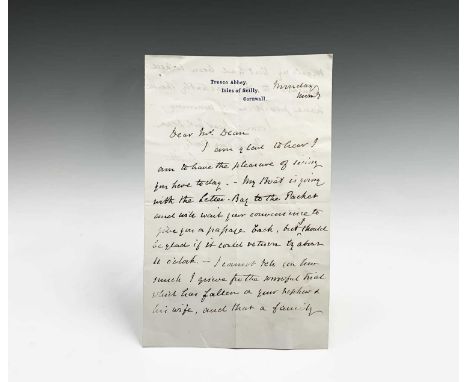 Tresco Abbey,
Isles of Scilly,
Cornwall.
Dear Mr. Dean
I am glad to hear I
am to have the pleasure of seeing
you here today. - My Boat is going
with the Letter-Bag to the Packet
and will wait your convenience to
give you a passage back, but I should
be glad if it could return by about
o'clock. - I cannot tell you how
much I grieve for the sorrowful trial
which has fallen on your nephew &
his wife, and that a family